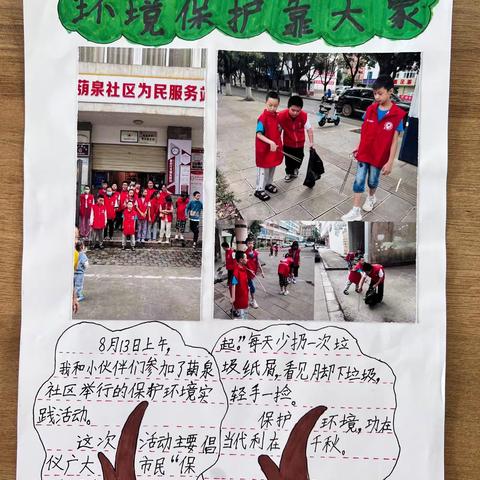 环境保护靠大家
萌泉社区为民服务站
8月13日上午,
我和小伙伴们参加了萌泉
社区举行的保护环境实
践活动。
这次活动主要倡
仪广大市民“保
起。”每天少扔一次垃
圾纸屑,看见脚下垃圾,
轻手一捡。
保护环境,功在
当代利在千秋。